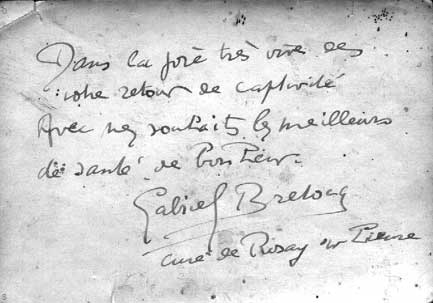 Dans la joie très vive de
votre retour de captivité
Avec mes souhaits les meilleurs
de santé de bonheur.
Gabriel
curé de Rosay sur Lieure